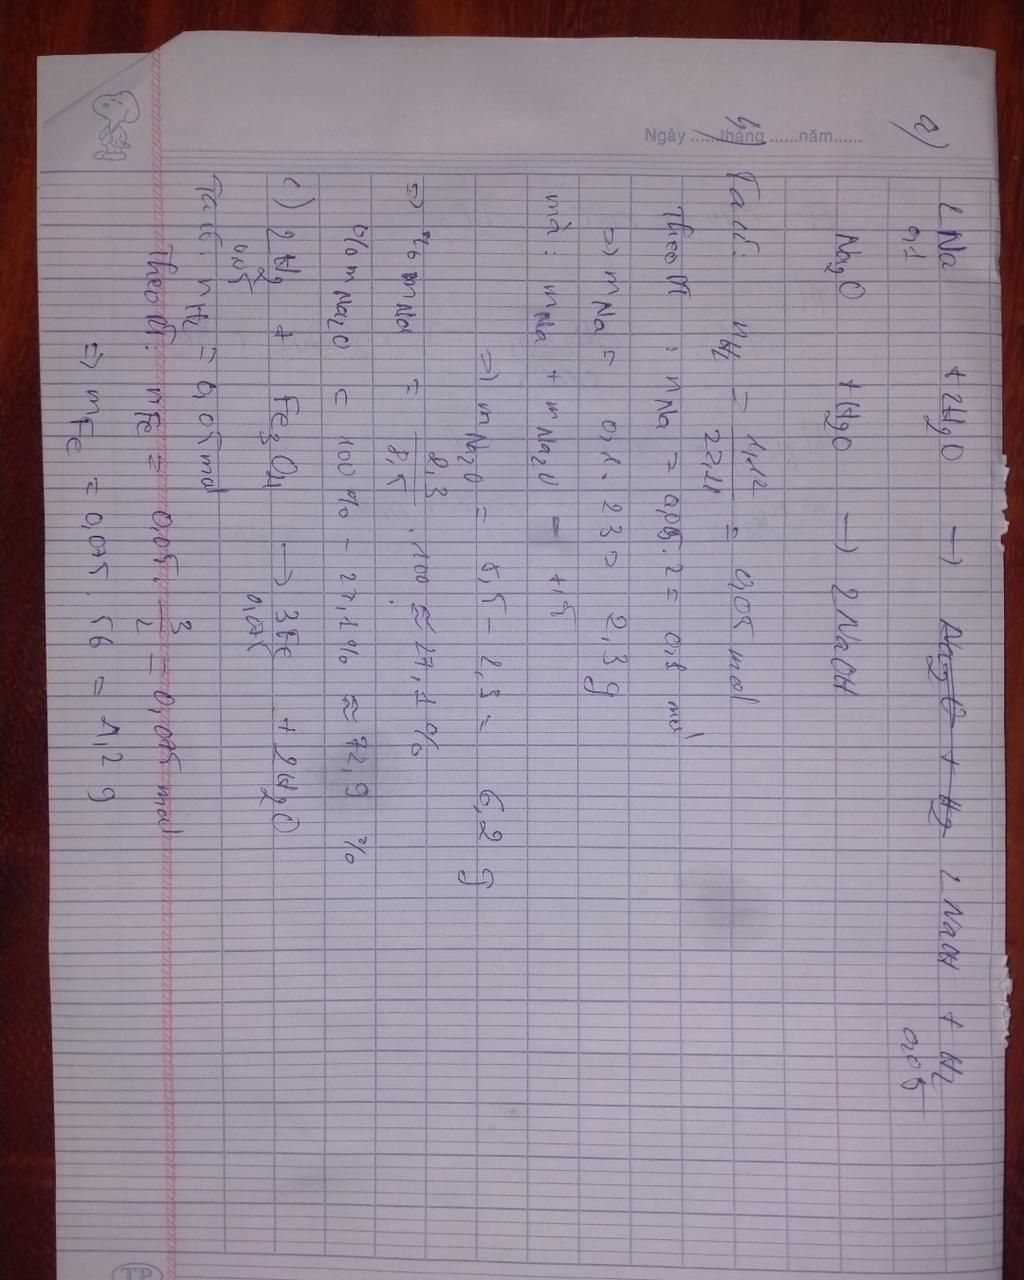 Ngày ......tháng ......năm......
a) 2Na + 2H2O → Na2O + H2 2NaOH + H2
0,1 0,05
Na2O + H2O → 2NaOH
b)
Ta có: nH2 = 1,12/22,4 = 0,05 mol
Theo Pt : nNa = 0,05.2 = 0,1 mol
=> mNa = 0,1. 23 = 2,3 g
mà: mNa + mNa2O =
=> mNa2O = 8,5 - 2,3 = 6,2 g
=> % mNa = 2,3/8,5 . 100 ≈ 27,1 %
% mNa2O = 100 % - 27,1 % ≈ 72,9 %
c) 2H2 + Fe3O4 → 3Fe + 2H2O
0,05 0,075
Ta có: nH2 = 0,05 mol
Theo Pt: nFe = 0,05. 3/2 = 0,075 mol
=> mFe = 0,075 . 56 = 4,2 g
TP